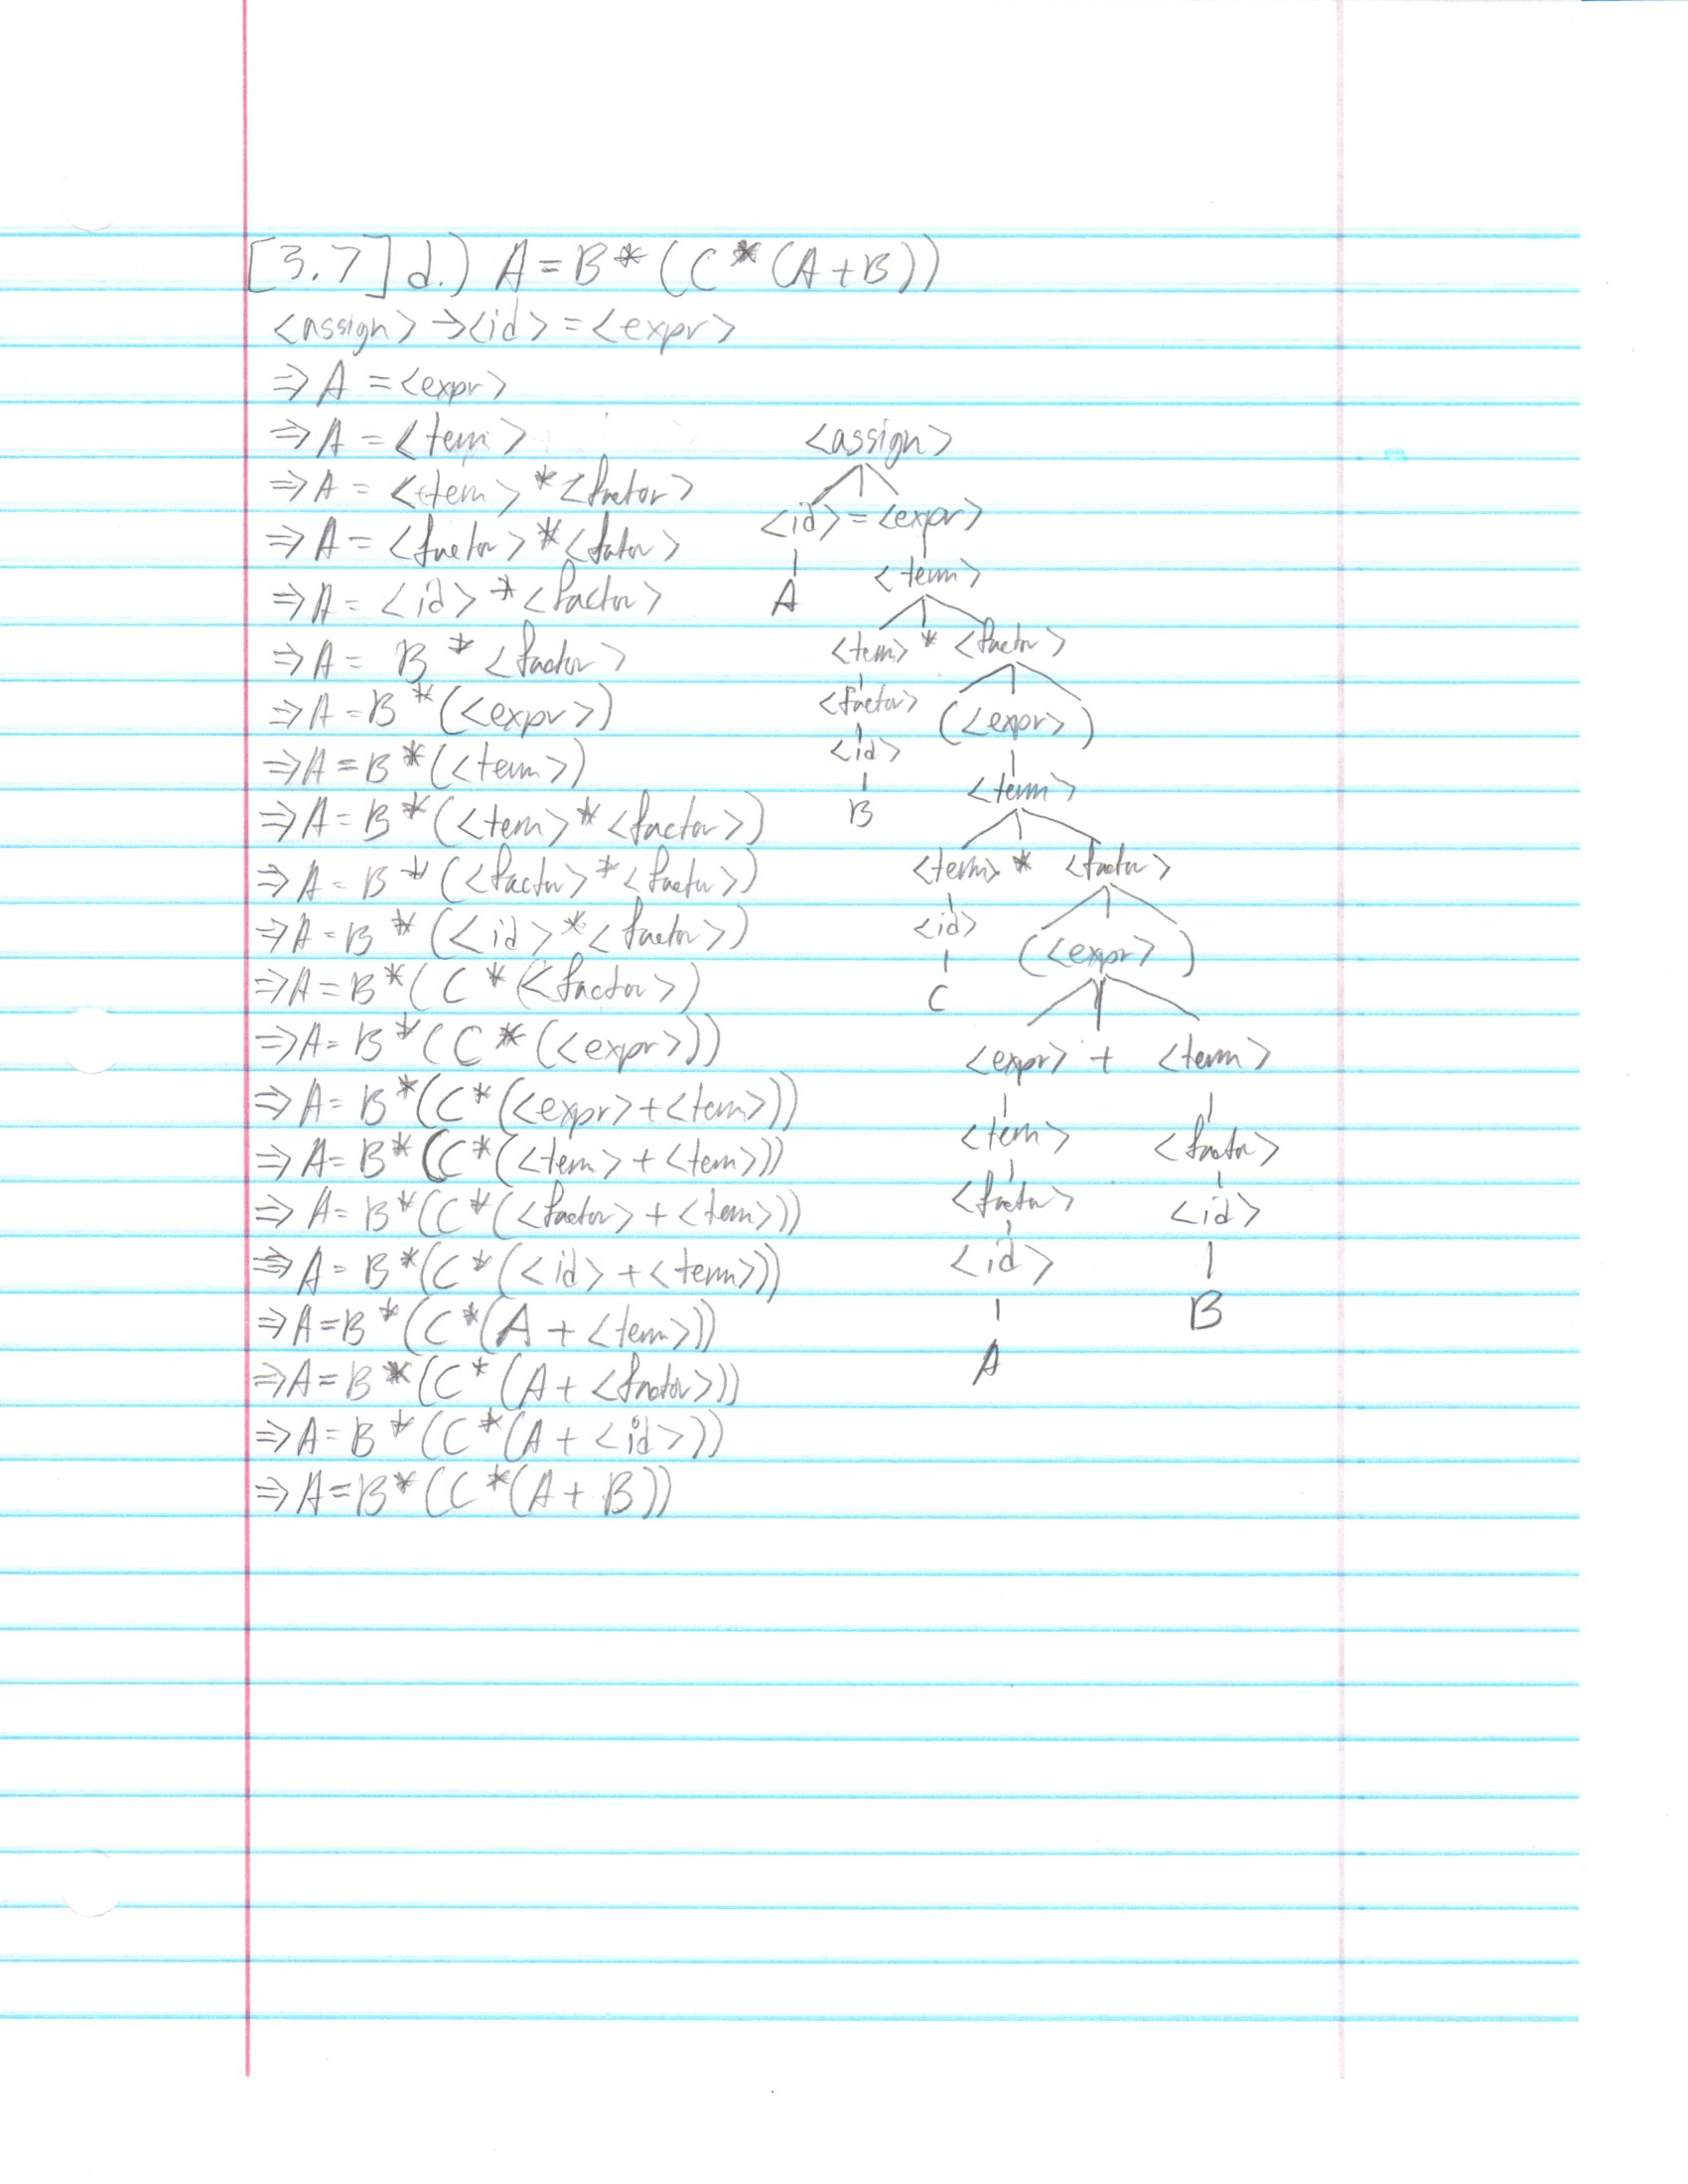 [3.7] d.) A = B * (C * (A + B))
<assign> → <id> = <expr>
⇒ A = <expr>
⇒ A = <term>
⇒ A = <term> * <factor>
⇒ A = <factor> * <fator>
⇒ A = <id> * <factor>
⇒ A = B * <factor>
⇒ A = B * (<expr>)
⇒ A = B * (<term>)
⇒ A = B * (<term> * <factor>)
⇒ A = B * (<factor> * <factor>)
⇒ A = B * (<id> * <factor>)
⇒ A = B * (C * (<factor>)
⇒ A = B * (C * (<expr>))
⇒ A = B * (C * (<expr> + <term>))
⇒ A = B * (C * (<term> + <term>))
⇒ A = B * (C * (<factor> + <term>))
⇒ A = B * (C * (<id> + <term>))
⇒ A = B * (C * (A + <term>))
⇒ A = B * (C * (A + <factor>))
⇒ A = B * (C * (A + <id>))
⇒ A = B * (C * (A + B))
<assign>
<id> = <expr>
A <term>
<term> * <factor>
<factor> (<expr>)
<id>
B <term>
<term> * <factor>
<id> (<expr>)
C
<expr> + <term>
<term> <factor>
<factor> <id>
<id> B
A